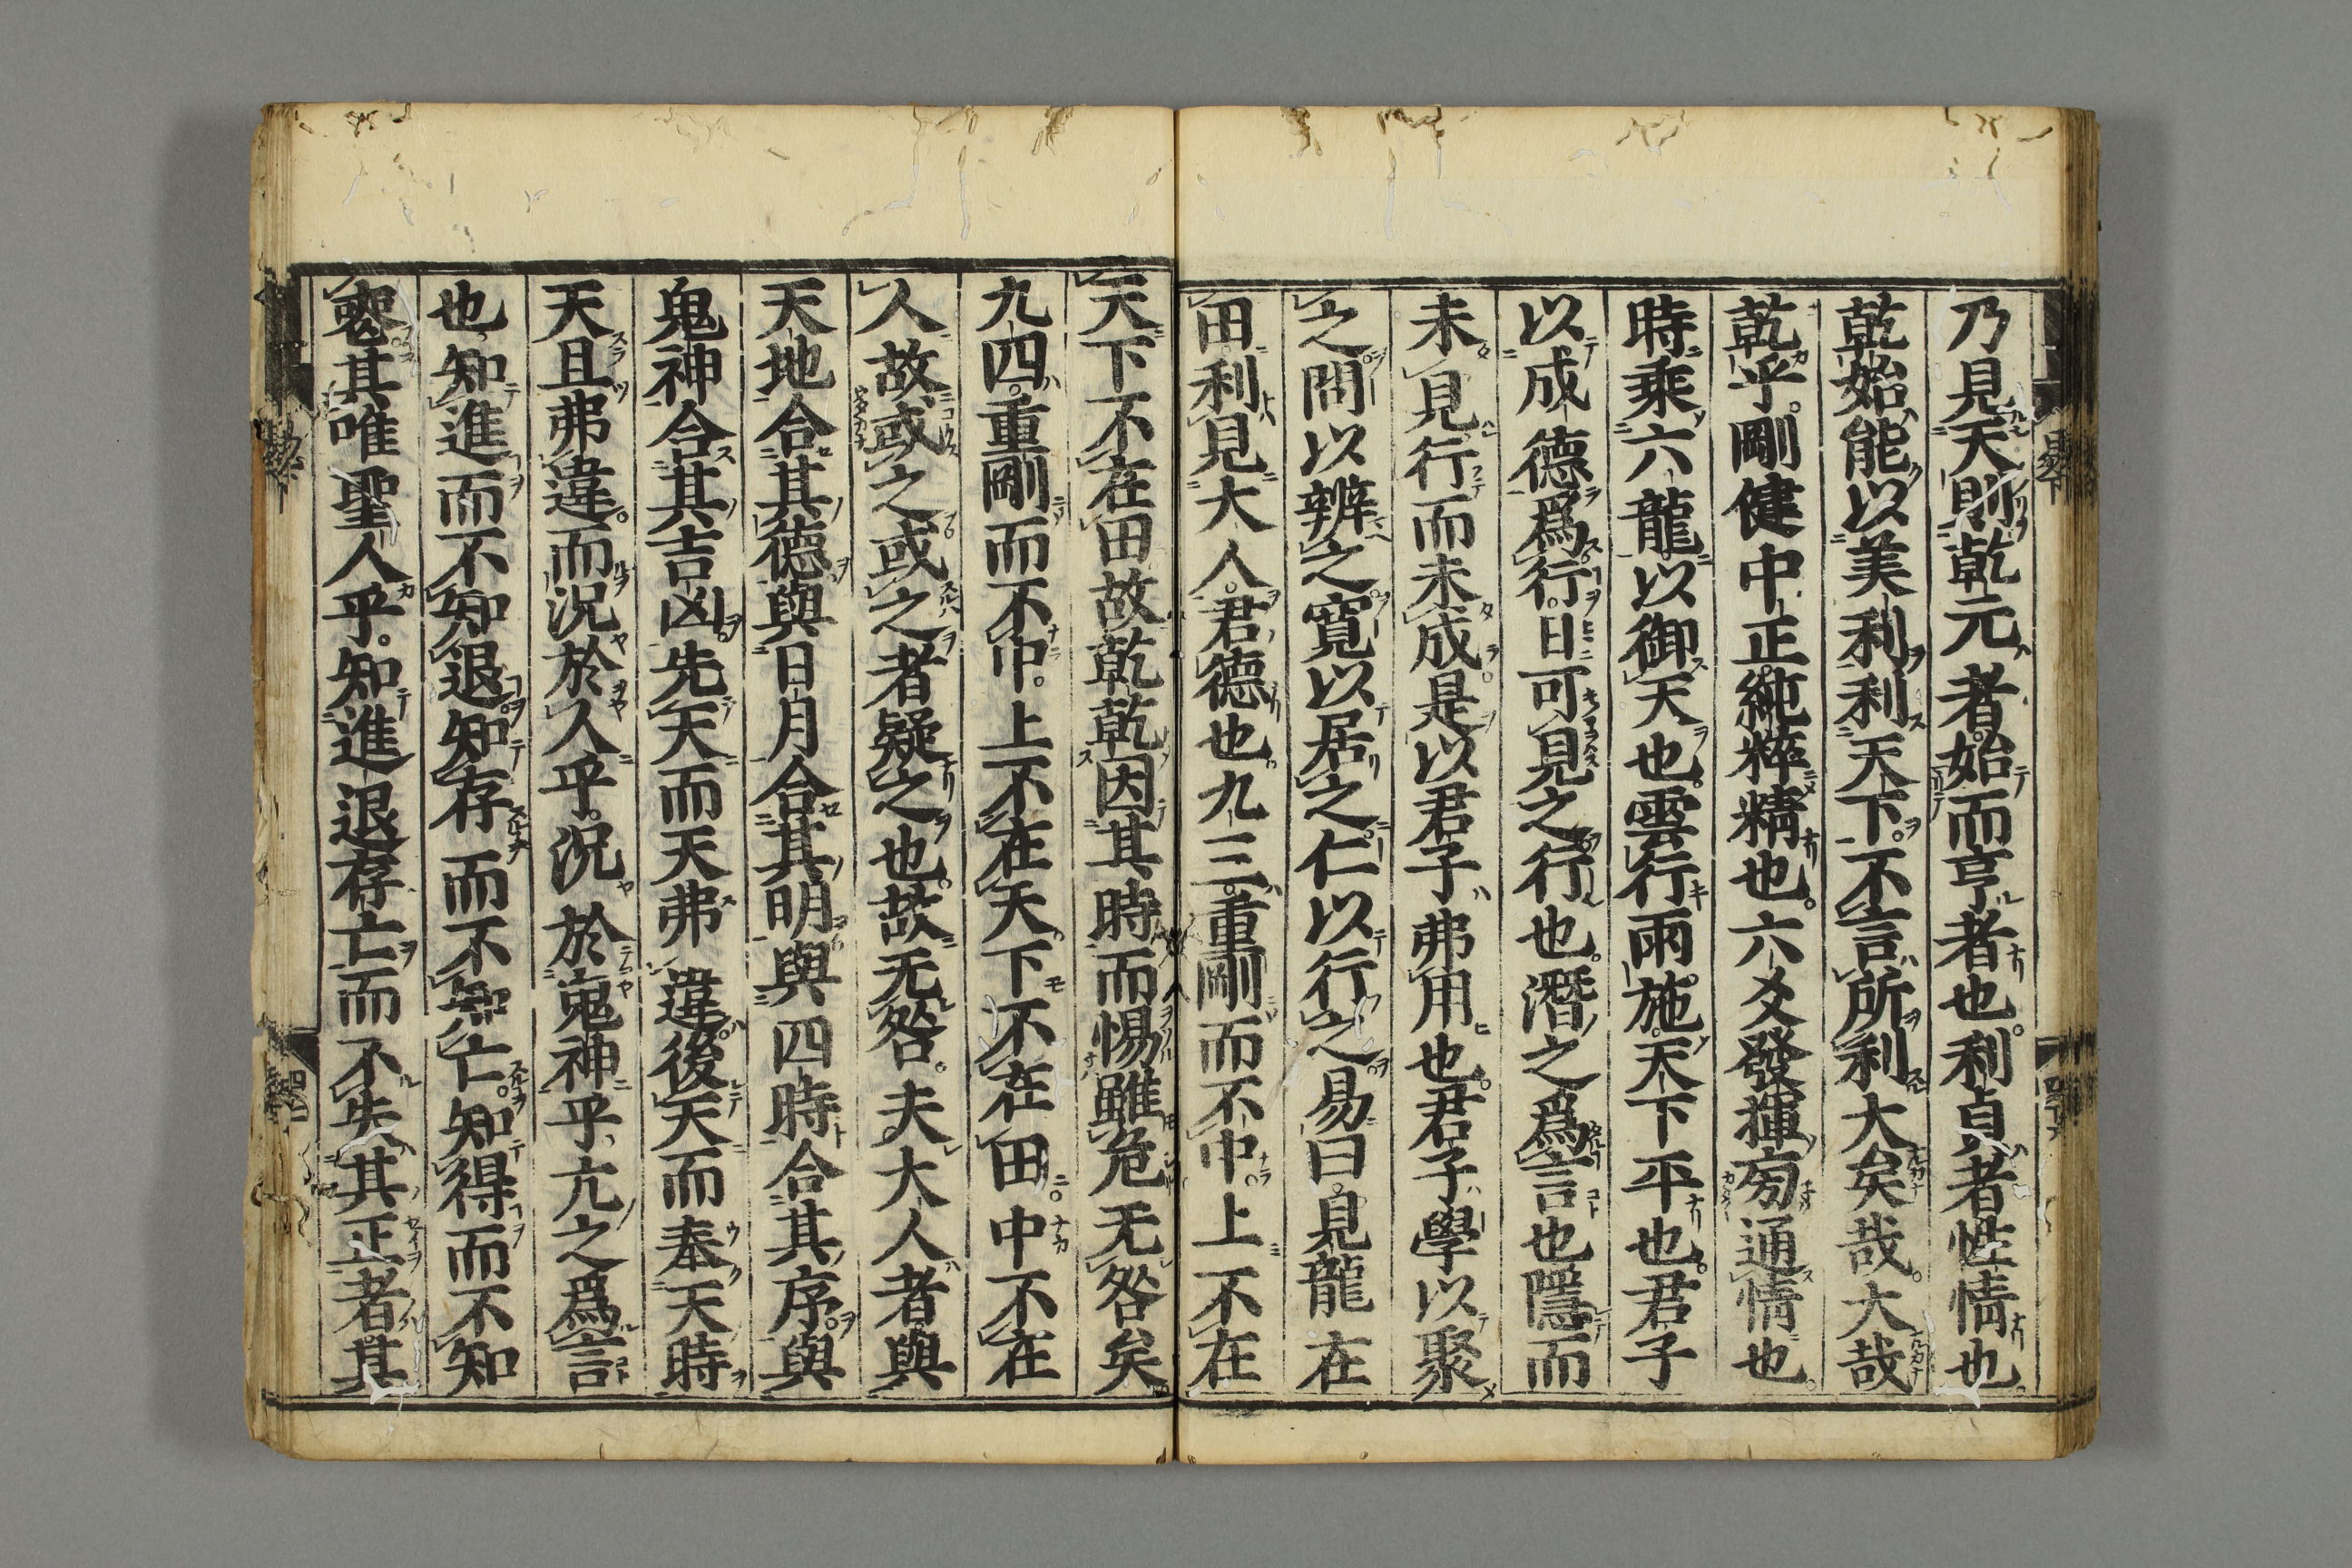 乃見天則乾元者始而亨者也利貞者性情也
乾始能以美利利天下不言所利大矣哉大哉
乾乎剛健中正純粹精也六爻發揮旁通情也
時乘六龍以御天也雲行雨施天下平也君子
以成德爲行日可見之行也潛之爲言也隱而
未見行而未成是以君子弗用也君子學以聚
之問以辨之寬以居之仁以行之易曰見龍在
田利見大人君德也九三重剛而不中上不在
天下不在田故乾乾因其時而惕雖危无咎矣
九四重剛而不中上不在天下不在田中不在
人故或之或之者疑之也故无咎夫大人者與
天地合其德與日月合其明與四時合其序與
鬼神合其吉凶先天而天弗違後天而奉天時
天且弗違而況於人乎況於鬼神乎亢之爲言
也知進而不知退知存而不知亡知得而不知
喪其唯聖人乎知進退存亡而不失其正者其